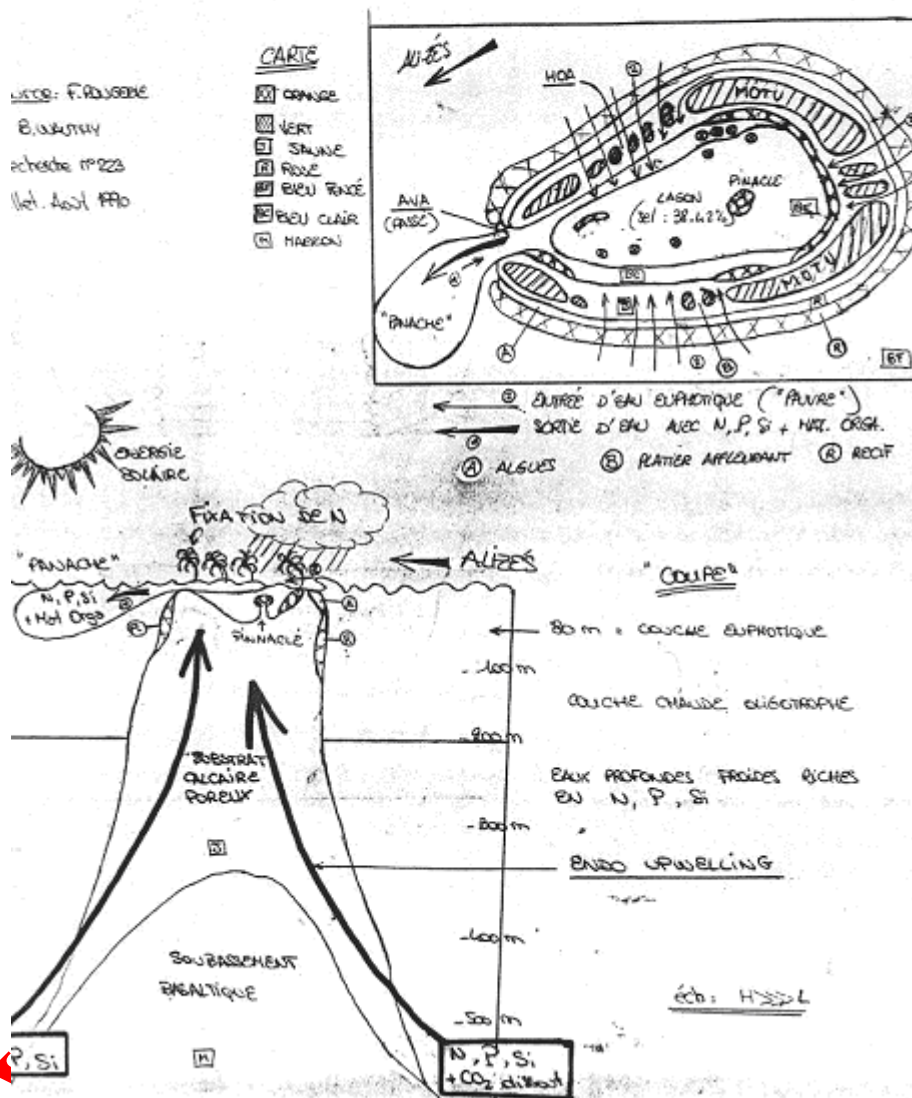 F. ROUGERIE
B. WAUTHY
Recherche n°223
Août 1990
CARTE
ORANGE
VERT
J JAUNE
R ROSE
BF BLEU FONCÉ
BC BLEU CLAIR
M MARRON
ALIZÉS
HOA
MOTU
AVA
(PASSE)
LAGON
(sel: 38.42%)
PINACLE
MOTU
"PANACHE"
BC
A
B
R
BF
ENTRÉE D'EAU EUPHOTIQUE ("PAUVRE")
SORTIE D'EAU AVEC N, P, Si + MAT. ORGA.
A ALGUES B PLATIER AFFLEURANT R RECIF
ENERGIE
SOLAIRE
FIXATION DE N
"PANACHE"
ALIZES
"COUPE"
N, P, Si
+ Mat Orga
PINNACLE
80 m = COUCHE EUPHOTIQUE
-100m
COUCHE CHAUDE OLIGOTROPHE
-200m
SUBSTRAT
CALCAIRE
POREUX
EAUX PROFONDES FROIDES RICHES
EN N, P, Si
-300m
J
ENDO UPWELLING
-400m
SOUBASSEMENT
BASALTIQUE
éch: H>>>L
-500m
P, Si
M
N, P, Si
+ CO2 dissout